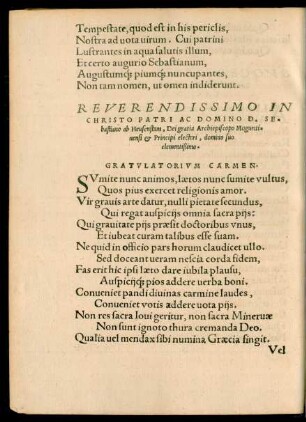 Tempestate, quod est in his periclis,
Nostra ad uota uirum. Cui patrini
Lustrantes in aqua salutis illum,
Et certo augurio Sebastianum,
Augustumq́; piumq́; nuncupantes,
Non tam nomen, ut omen indiderunt.
REVERENDISSIMO IN
CHRISTO PATRI AC DOMINO D. SE-
bastiano ab Heusenstam, Dei gratia Archiepiscopo Magunti-
nensi & Principi electori, domino suo
clementissimo.
GRATVLATORIVM CARMEN.
SVmite nunc animos, lætos nunc sumite vultus,
Quos pius exercet religionis amor.
Vir grauis arte datur, nulli pietate secundus,
Qui regat auspicijs omnia sacra pijs:
Qui grauitate pijs præsit doctoribus vnus,
Et iubeat curam talibus esse suam.
Ne quid in officio pars horum claudicet vllo.
Sed doceant ueram nescia corda fidem,
Fas erit hic ipsi læto dare iubila plausu,
Auspicijq́; pios addere uerba boni.
Conueniet pandi diuinas carmine laudes,
Conueniet votis addere uota pijs.
Non res sacra Ioui geritur, non sacra Mineruæ
Non sunt ignoto thura cremanda Deo.
Qualia uel mendax sibi numina Græcia fingit.
Vel